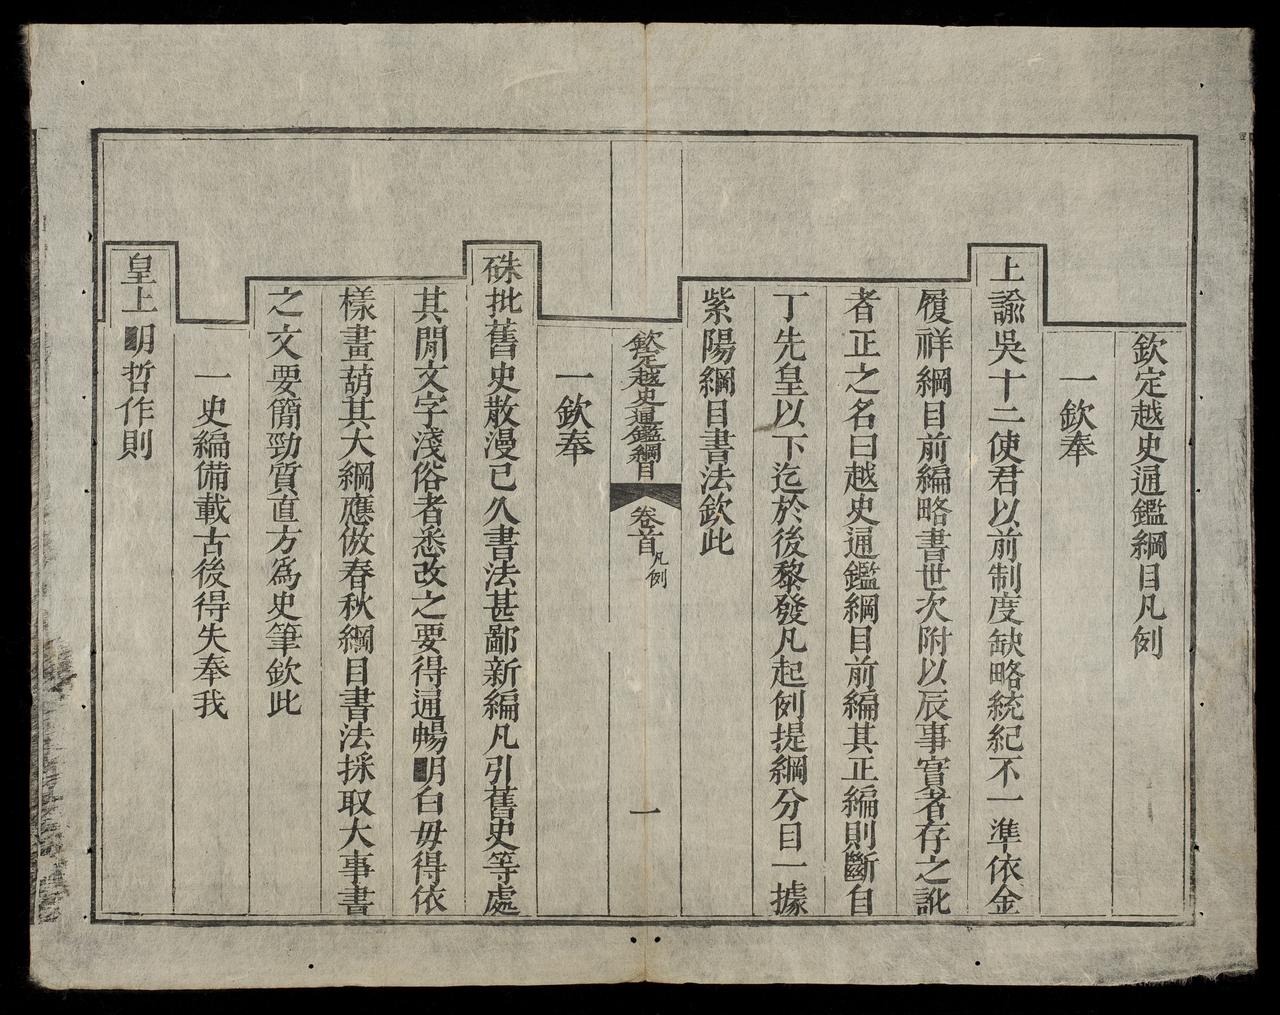 欽定越史通鑑綱目凡例
一欽奉
上諭吳十二使君以前制度缺略統紀不一準依金
履祥綱目前編略書世次附以辰事實者存之訛
者正之名曰越史通鑑綱目前編其正編則斷自
丁先皇以下迄於後黎發凡起例提綱分目一據
紫陽綱目書法欽此
欽定越史通鑑綱目
卷首
凡例
一
一欽奉
硃批舊史散漫已久書法甚鄙新編凡引舊史等處
其間文字淺俗者悉改之要得通暢明白毋得依
樣畫葫其大綱應倣春秋綱目書法採取大事書
之文要簡勁質直方爲史筆欽此
一史編備載古後得失奉我
皇上明哲作則